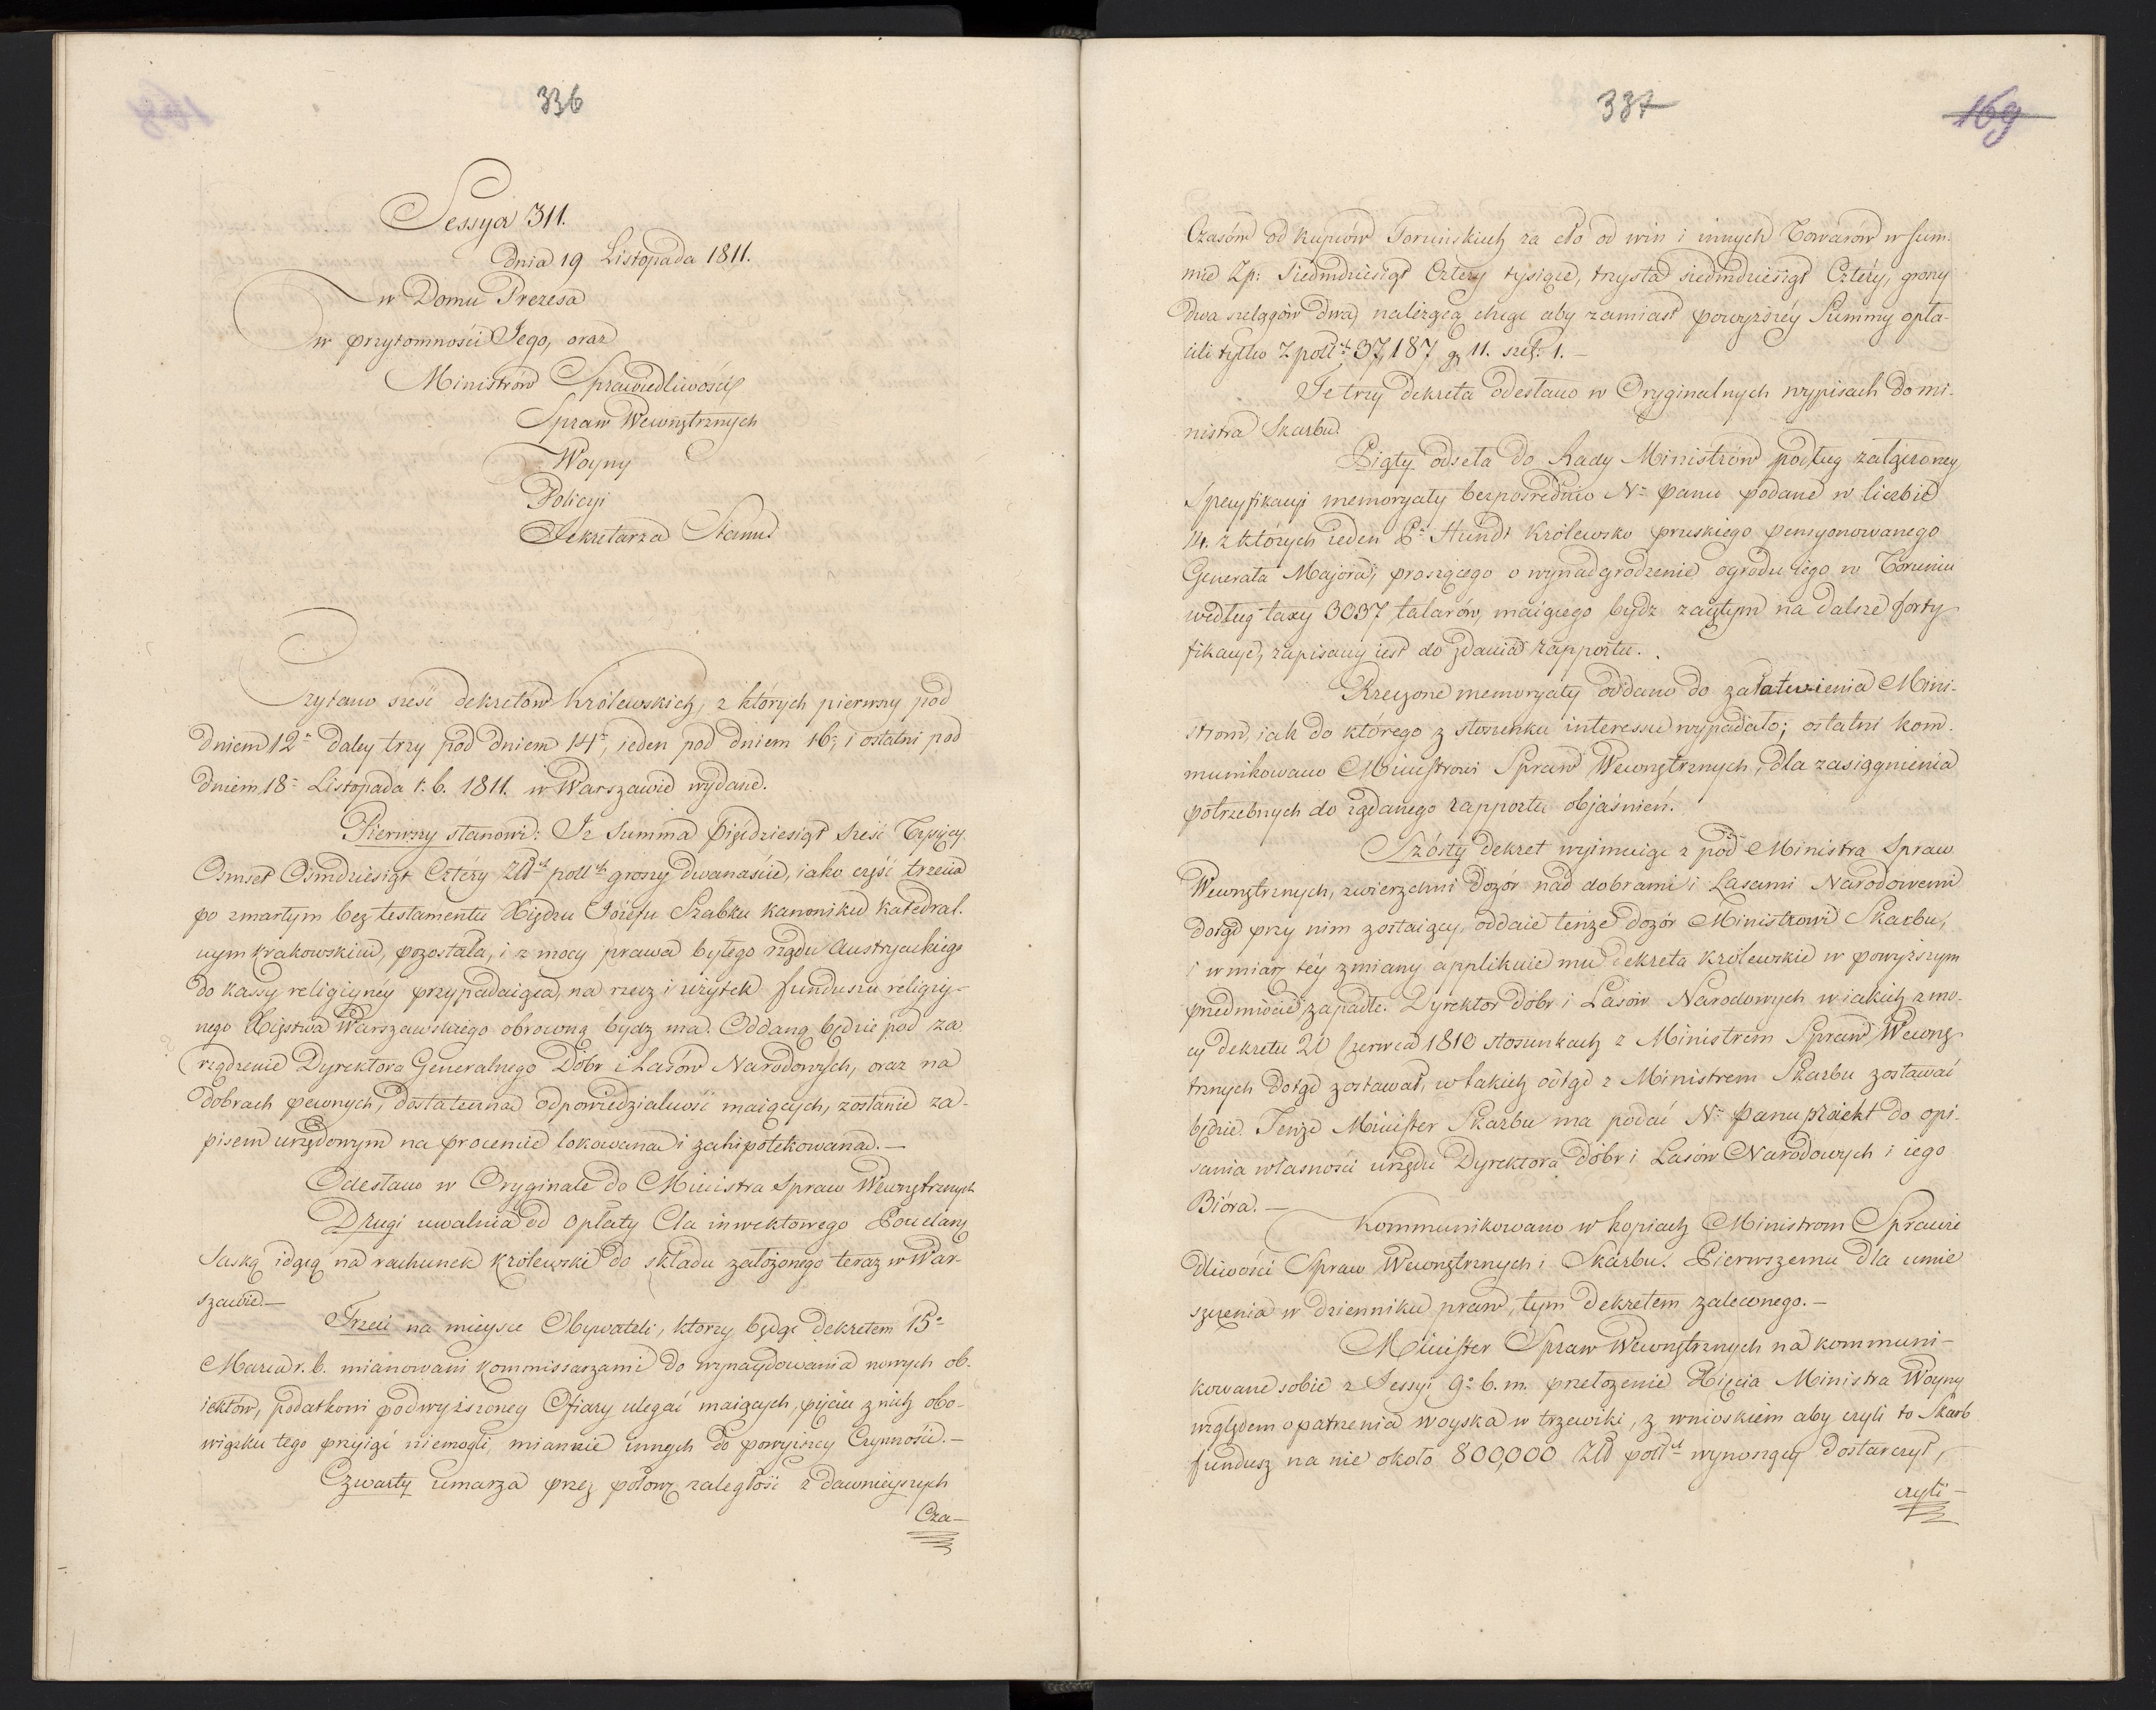 336
Sessya 311.
Dnia 19 Listopada 1811.
w Domu Prezesa
w przytomności Jego, oraz
Ministrów Sprawiedliwości
Spraw Wewnętrznych
Woyny
Policyi
Sekretarza Stanu
Czytano sześć dekretów Królewskich, z których pierwszy pod
dniem 12º daley trzy pod dniem 14º, ieden pod dniem 16º, i ostatni pod
dniem 18º Listopada r. b. 1811. w Warszawie wydane.
Pierwszy stanowi: Iż Summa pięćdziesiąt sześć Tysięcy
Ośmset Ośmdziesiąt Cztéry Złłch pollch groszy dwanaście, iako część trzecia
po zmarłym bez testamentu Xiędzu Józefu Szabku kanoniku Katedral-
nym krakowskim, pozostała, i z mocy prawa byłego rządu Austryackiego
do kassy religiynéy przypadaiąca, na rzecz i użytek funduszu religiy-
nego Xięstwa Warszawskiego obroconą bydź ma. Oddaną będzie pod za
rządzenie Dyrektora Generalnego Dóbr i Lasów Narodowych, oraz na
dobrach pewnych, dostateczną odpowiedzialność maiących, zostanie za-
pisem urzędowym na procencie lokowana i zahipotekowana.—
Odesłano w Oryginale do Ministra Spraw Wewnętrznych
Drugi uwalnia od opłaty Cła inwektowego Porcelanę
Saską idącą na rachunek Królewski do składu założonego teraz w War-
szawie.—
Trzeci na mieysce Obywateli, ktorzy będąc dekretem 15º
Marca r. b. mianowani kommissarzami do wynaydowania nowych ob-
iektów, podatkowi podwyższoney Ofiary ulegać maiących, pięciu z nich obo-
wiązku tego przyiąć niemogli, mianuie innych do powyższey Czynności.—
Czwarty umarza przez połowę zaległość z dawnieyszych
Cza—
337
169
Czasów od kupców Toruńskich za cło od win i innych Towarów w Sum-
mie Zp: Siedmdziesiąt Cztery tysiące, trzysta siedmdziesiąt Cztéry, groszy
dwa szelągów dwa, należącą chcąc aby zamiast powyższéy Summy opła-
cili tylko Z pollch 37,187 gr 11. szel: 1.—
Te trzy dekreta odesłano w Oryginalnych wypisach do mi-
nistra Skarbu.
Piąty odseła do Rady Ministrów podług załączoney
Specyfikacyi memoryały bezpośrednio Nº Panu podane w liczbie
14. z których ieden Pº Hundt Królewsko pruskiego pensyonowanego
Generała Majora, proszącego o wynadgrodzenie ogrodu iego w Toruniu
według taxy 3037 talarów, maiącego bydz zaiętym na dalsze forty-
fikacye, zapisany iest do zdania rapportu.
Rzeczone memoryały oddano do załatwienia Mini-
strom, iak do którego z stosunku interessu wypadało; ostatni kom-
munikowano Ministrowi Spraw Wewnętrznych, dla zasiągnienia
potrzebnych do żądanego rapportu objaśnień.
Szósty dekret wyimuiąc z pod Ministra Spraw
Wewnętrznych, zwierzchni dozór nad dobrami i Lasami Narodowemi
dotąd przy nim zostaiący, oddaie tenże dozór Ministrowi Skarbu,
i w miarę téy zmiany applikuie mu dekreta królewskie w powyższym
przedmiocie zapadłe. Dyrektor dóbr i Lasów Narodowych w iakich z mo-
cy dekretu 20 Czerwca 1810 stosunkach z Ministrem Spraw Wewnę-
trznych dotąd zostawał, w takich odtąd z Ministrem Skarbu zostawać
będzie. Tenże Minister Skarbu ma podać Nº Panu projekt do opi-
sania własności urzędu Dyrektora dóbr i Lasów Narodowych i iego
Bióra.—
Kommunikowano w kopiach Ministrom Sprawie
dliwości Spraw Wewnętrznych i Skarbu. Pierwszemu dla umie
szczenia w dzienniku praw, tym dekretem zaleconego.—
Minister Spraw Wewnętrznych na kommuni-
kowane sobie z Sessyi 9º b. m. przełożenie Xięcia Ministra Woyny
względem opatrzenia woyska w trzewiki, z wnioskiem aby czyli to Skarb
fundusz na nie około 800,000 Złł pollch wynoszący dostarczył,
czyli—